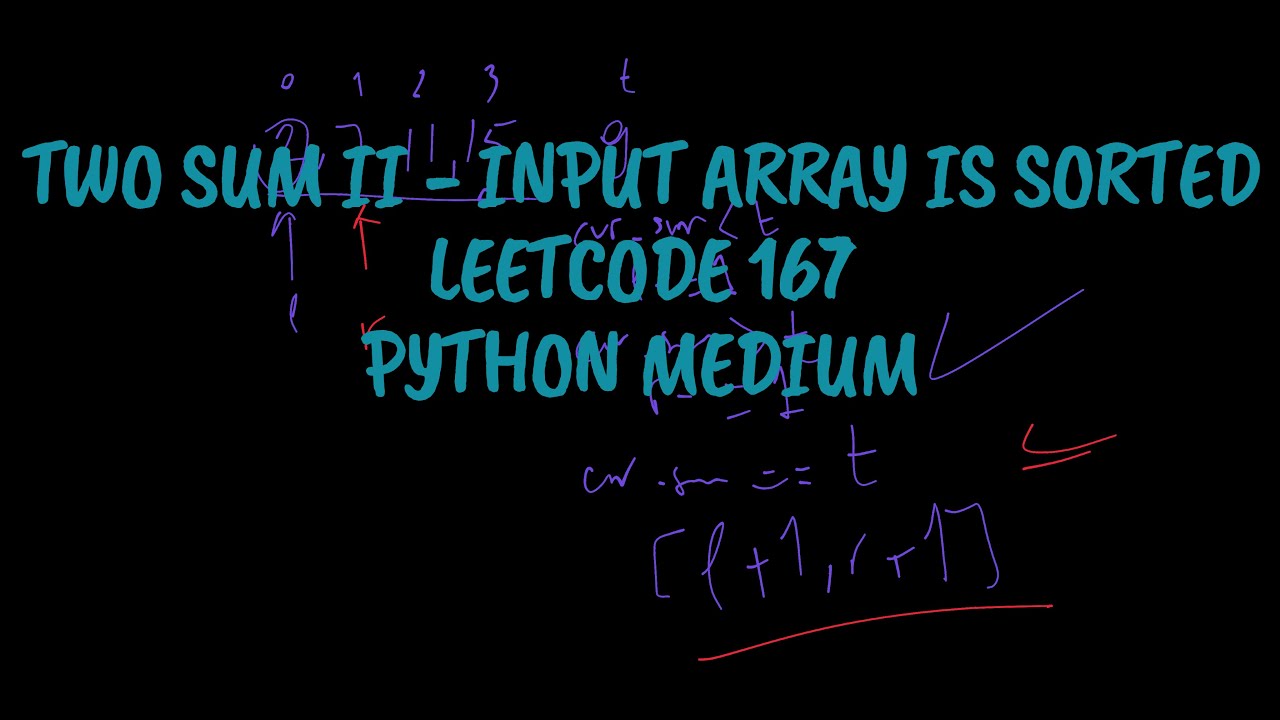 0 1 2 3 t
2, 7, 11, 15 9
TWO SUM II - INPUT ARRAY IS SORTED
cur_sum < t
LEETCODE 167
PYTHON MEDIUM
cur_sum == t
[l+1, r+1]